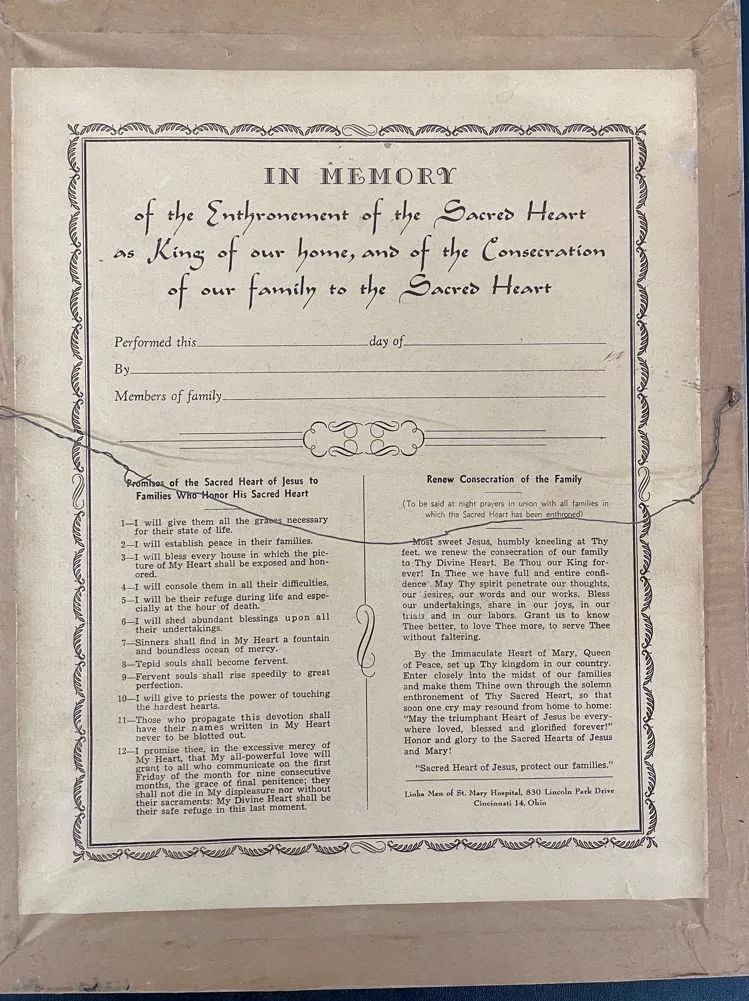 IN MEMORY
of the Enthronement of the Sacred Heart
as King of our home, and of the Consecration
of our family to the Sacred Heart
Performed this day of
By
Members of family
Promises of the Sacred Heart of Jesus to
Families Who Honor His Sacred Heart
1—I will give them all the graces necessary
for their state of life.
2—I will establish peace in their families.
3—I will bless every house in which the pic-
ture of My Heart shall be exposed and hon-
ored.
4—I will console them in all their difficulties.
5—I will be their refuge during life and espe-
cially at the hour of death.
6—I will shed abundant blessings upon all
their undertakings.
7—Sinners shall find in My Heart a fountain
and boundless ocean of mercy.
8—Tepid souls shall become fervent.
9—Fervent souls shall rise speedily to great
perfection.
10—I will give to priests the power of touching
the hardest hearts.
11—Those who propagate this devotion shall
have their names written in My Heart
never to be blotted out.
12—I promise thee, in the excessive mercy of
My Heart, that My all-powerful love will
grant to all who communicate on the first
Friday of the month for nine consecutive
months, the grace of final penitence; they
shall not die in My displeasure nor without
their sacraments; My Divine Heart shall be
their safe refuge in this last moment.
Renew Consecration of the Family
(To be said at night prayers in union with all families in
which the Sacred Heart has been enthroned)
Most sweet Jesus, humbly kneeling at Thy
feet, we renew the consecration of our family
to Thy Divine Heart. Be Thou our King for-
ever! In Thee we have full and entire confi-
dence. May Thy spirit penetrate our thoughts,
our desires, our words and our works. Bless
our undertakings, share in our joys, in our
trials and in our labors. Grant us to know
Thee better, to love Thee more, to serve Thee
without faltering.
By the Immaculate Heart of Mary, Queen
of Peace, set up Thy kingdom in our country.
Enter closely into the midst of our families
and make them Thine own through the solemn
enthronement of Thy Sacred Heart, so that
soon one cry may resound from home to home:
"May the triumphant Heart of Jesus be every-
where loved, blessed and glorified forever!"
Honor and glory to the Sacred Hearts of Jesus
and Mary!
"Sacred Heart of Jesus, protect our families."
Lioba Men of St. Mary Hospital, 830 Lincoln Park Drive
Cincinnati 14, Ohio